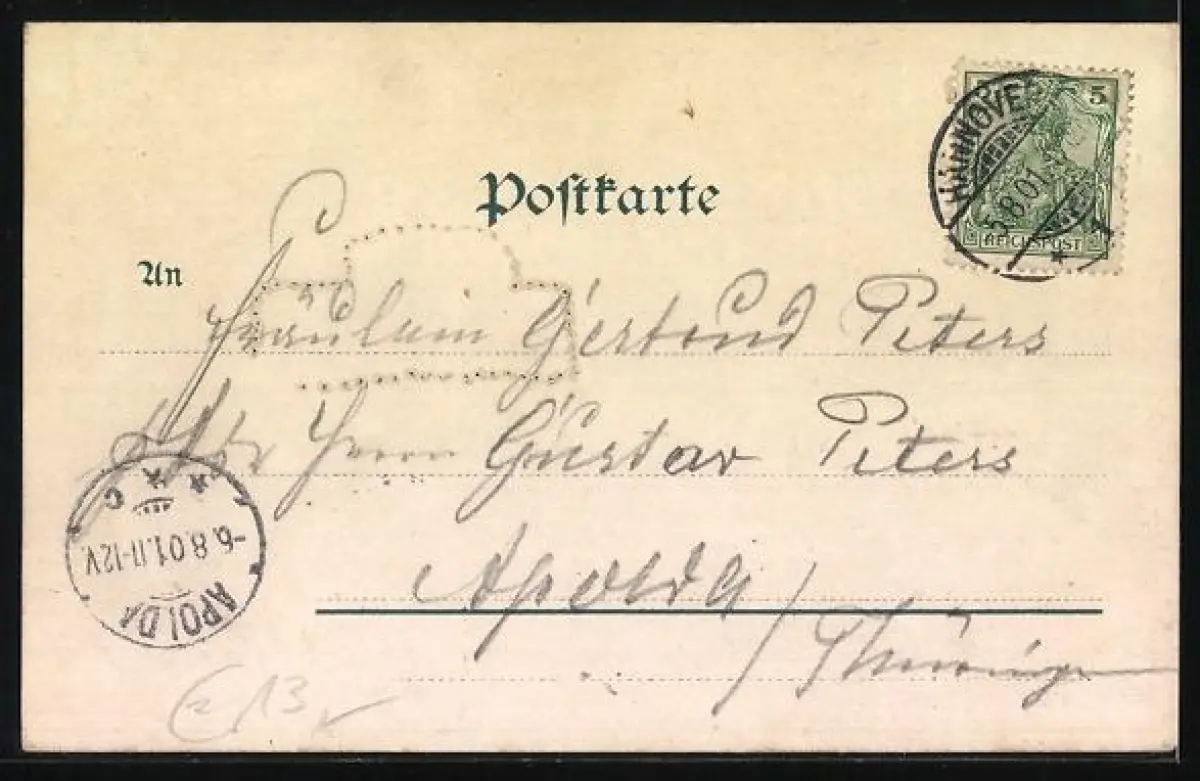 HANNOVER
5.8.01
* 1
5
REICHSPOST
Postkarte
An
Fräulein Gertrud Peters
Herrn Gustav Peters
Apolda / Thüringen
APOLDA
-6.8.01.11-12V.
* * C
13